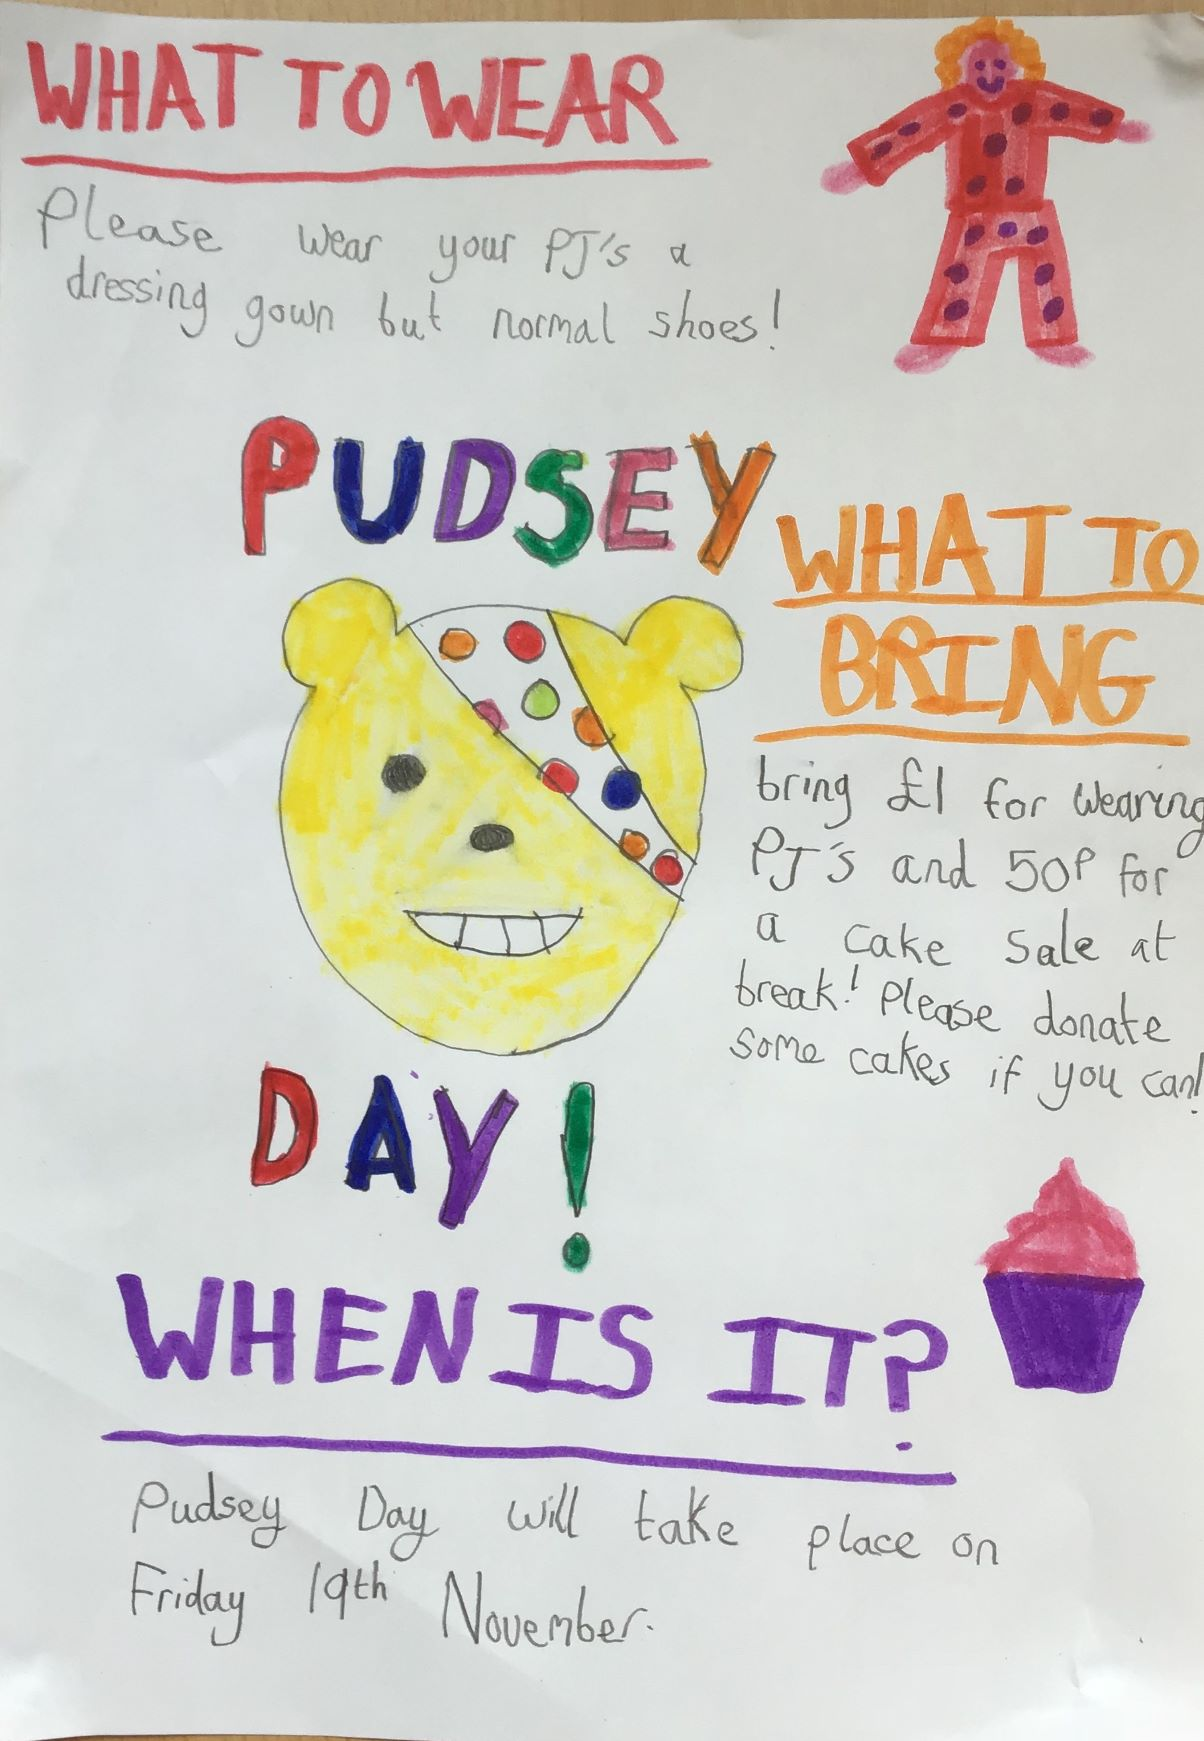 WHAT TO WEAR
Please wear your PJ's a
dressing gown but normal shoes!
PUDSEY
WHAT TO
BRING
bring £1 for wearing
PJ's and 50P for
a cake sale at
break! Please donate
some cakes if you can!
DAY!
WHEN IS IT?
Pudsey Day will take place on
Friday 19th November.